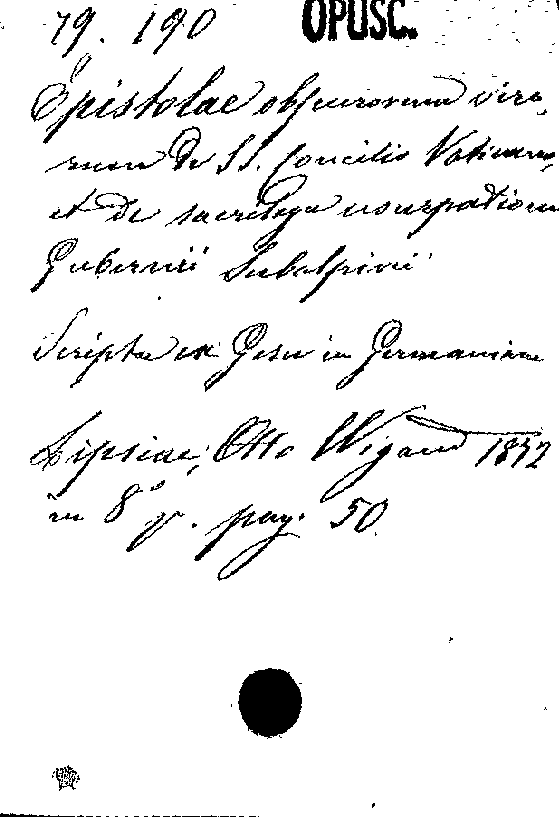 79. 190 OPUSC.
Epistolae obscurorum viro-
rum de SS. Concilio Vaticano,
et de sacrilega usurpatione
Gubernii Subalpini
Scriptae ex Gesu in Germaniam
Lipsiae, Otto Wigand 1872
in 8° gr. pag. 50